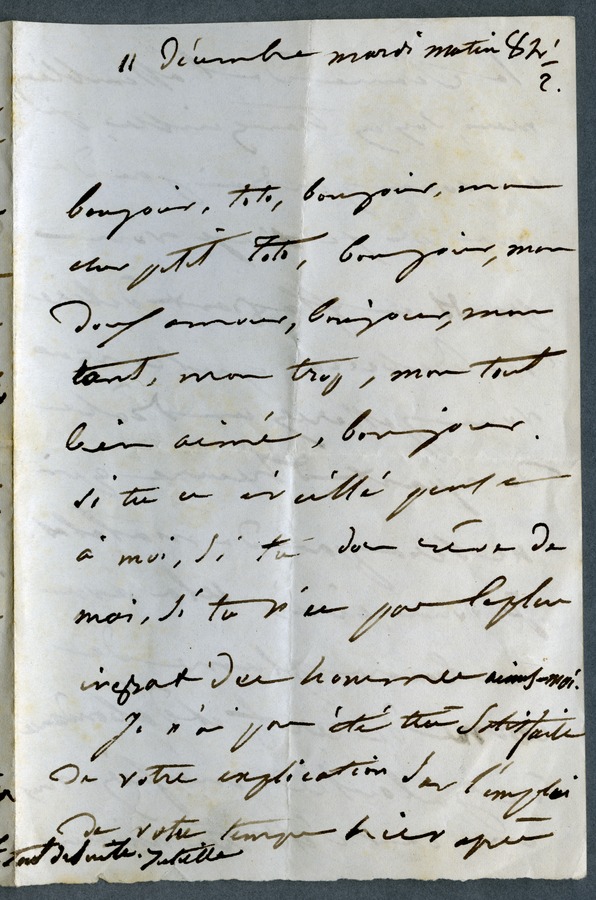 11 Décembre mardi matin 8h ½.
bonjour, toto, bonjour, mon
cher petit Toto, bonjour, mon
doux amour, bonjour, mon
tant, mon trop, mon tout
bien aimé, bonjour.
si tu es éveillé pense
à moi, si tu dors rêve de
moi, si tu n'es pas le plus
ingrat des hommes aimes-moi.
Je n'ai pas été très satisfaite
de votre explication sur l'emploi
de votre temps hier après
tout de suite. Juliette